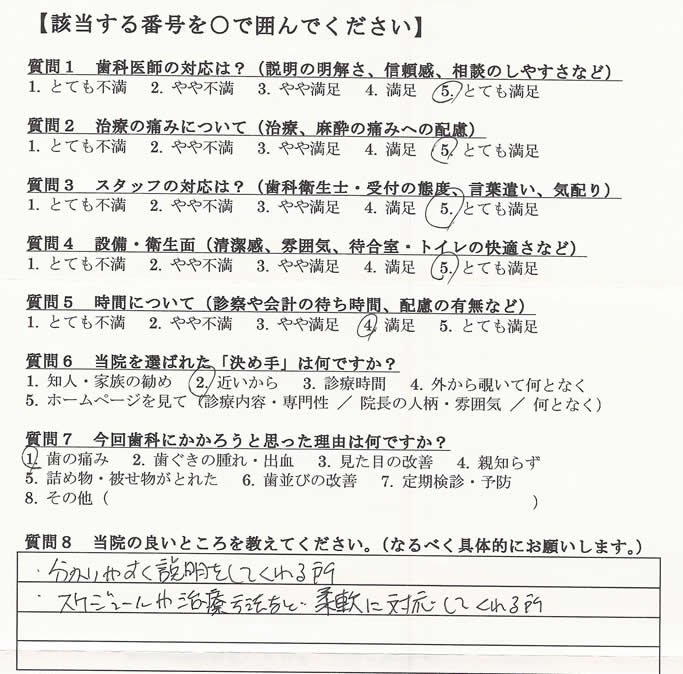 【該当する番号を〇で囲んでください】
質問1 歯科医師の対応は？（説明の明解さ、信頼感、相談のしやすさなど）
1. とても不満 2. やや不満 3. やや満足 4. 満足 5. とても満足
質問2 治療の痛みについて（治療、麻酔の痛みへの配慮）
1. とても不満 2. やや不満 3. やや満足 4. 満足 5. とても満足
質問3 スタッフの対応は？（歯科衛生士・受付の態度、言葉遣い、気配り）
1. とても不満 2. やや不満 3. やや満足 4. 満足 5. とても満足
質問4 設備・衛生面（清潔感、雰囲気、待合室・トイレの快適さなど）
1. とても不満 2. やや不満 3. やや満足 4. 満足 5. とても満足
質問5 時間について（診察や会計の待ち時間、配慮の有無など）
1. とても不満 2. やや不満 3. やや満足 4. 満足 5. とても満足
質問6 当院を選ばれた「決め手」は何ですか？
1. 知人・家族の勧め 2. 近いから 3. 診療時間 4. 外から覗いて何となく
5. ホームページを見て（診療内容・専門性 ／ 院長の人柄・雰囲気 ／ 何となく）
質問7 今回歯科にかかろうと思った理由は何ですか？
1. 歯の痛み 2. 歯ぐきの腫れ・出血 3. 見た目の改善 4. 親知らず
5. 詰め物・被せ物がとれた 6. 歯並びの改善 7. 定期検診・予防
8. その他（ ）
質問8 当院の良いところを教えてください。（なるべく具体的にお願いします。）
・分かりやすく説明をしてくれる所
・スケジュールや治療方法など柔軟に対応してくれる所